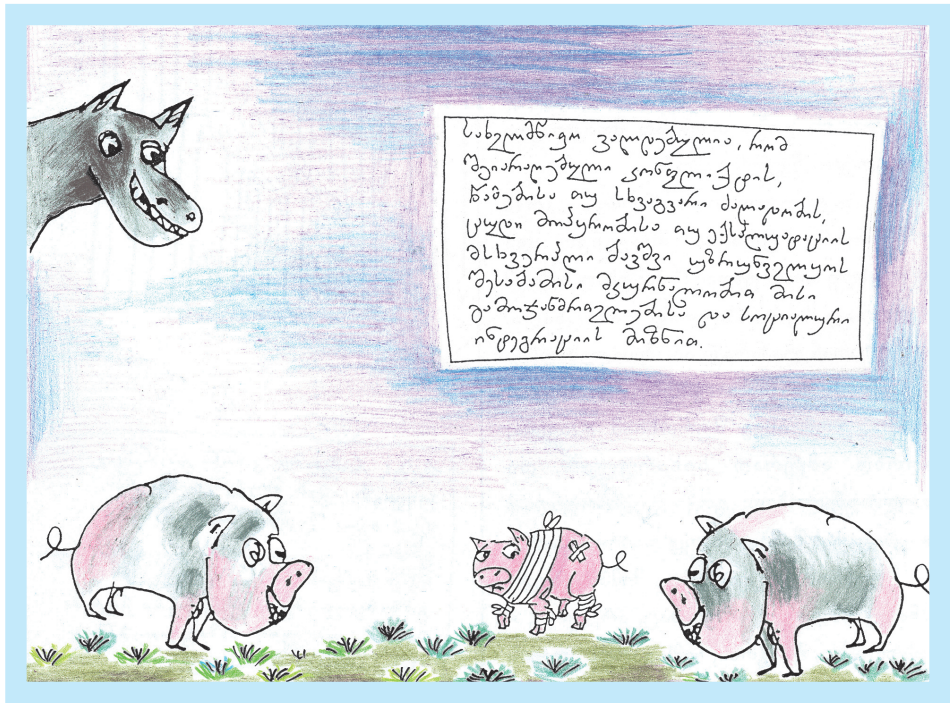 სახელმწიფო ვალდებულია, რომ
შეიარაღებული კონფლიქტის,
წამებისა თუ სხვაგვარი ძალადობის,
ცუდი მოპყრობისა თუ ექსპლუატაციის
მსხვერპლი ბავშვი უზრუნველყოს
შესაბამისი მკურნალობით მისი
გამოჯანმრთელებისა და სოციალური
ინტეგრაციის მიზნით.